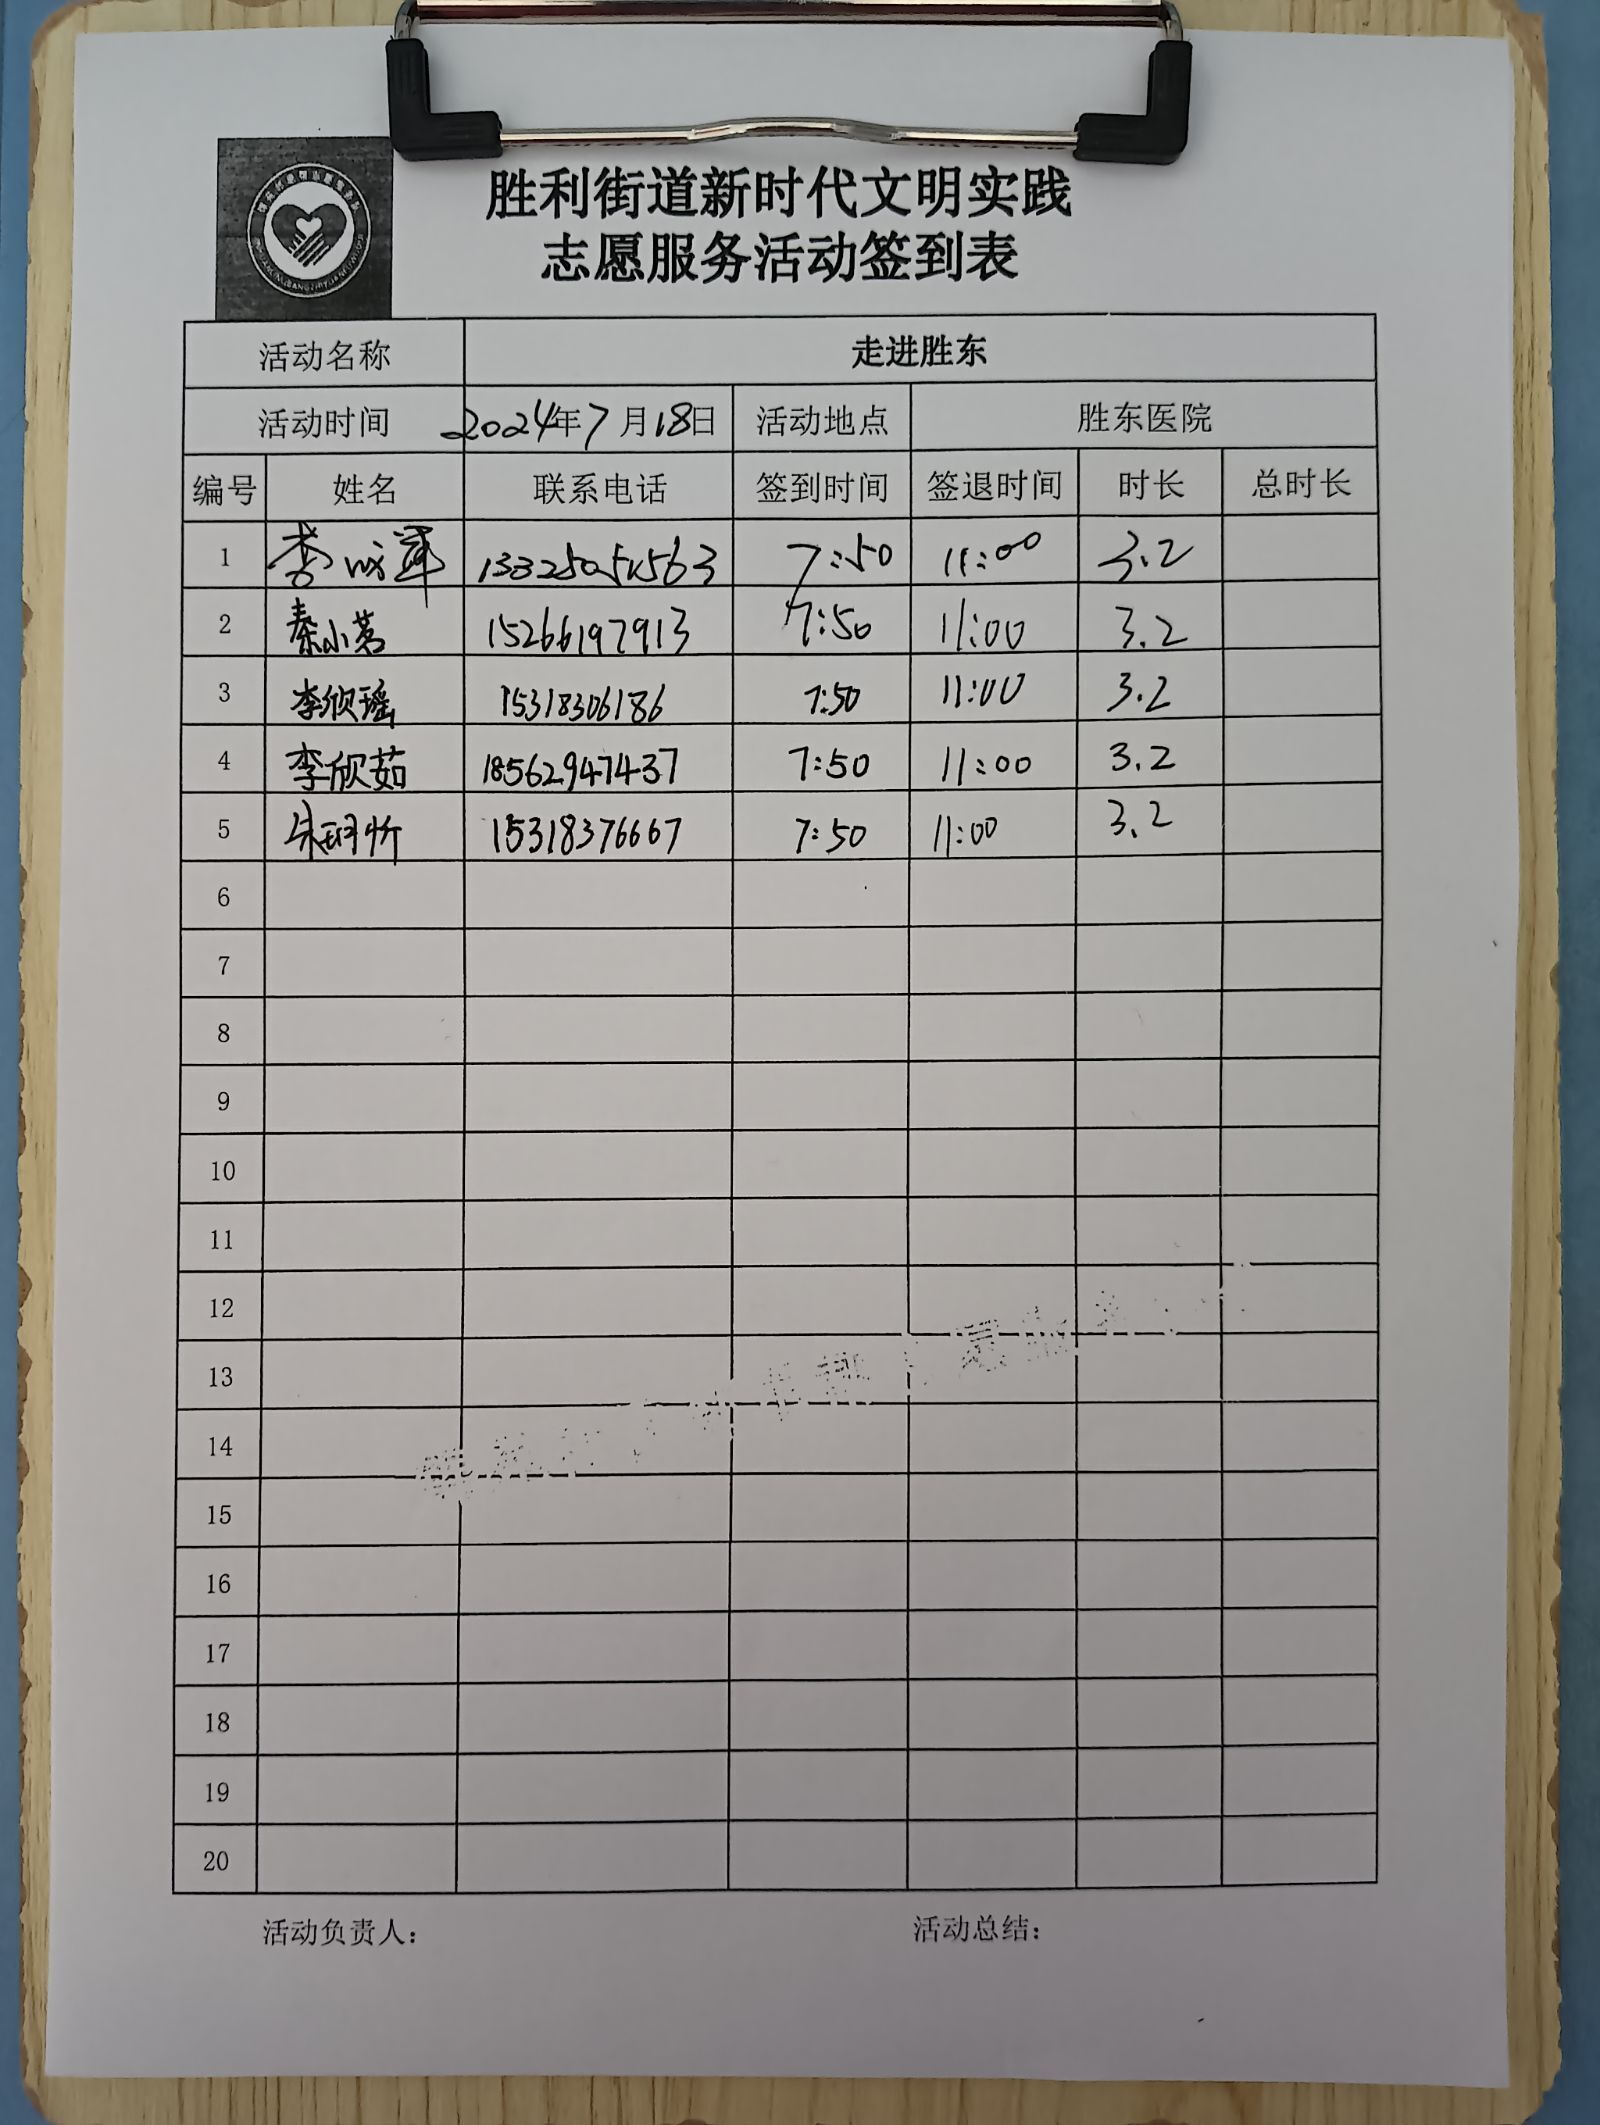 胜利街道新时代文明实践
志愿服务活动签到表
活动名称 走进胜东
活动时间 2024年7月18日 活动地点 胜东医院
编号 姓名 联系电话 签到时间 签退时间 时长 总时长
1 李 7:50 11:00 3.2
2 秦小茗 15266197913 7:50 11:00 3.2
3 李欣瑶 15318306186 7:50 11:00 3.2
4 李欣茹 18562947437 7:50 11:00 3.2
5 朱玥忻 15318376667 7:50 11:00 3.2
6
7
8
9
10
11
12
13
14
15
16
17
18
19
20
活动负责人： 活动总结：